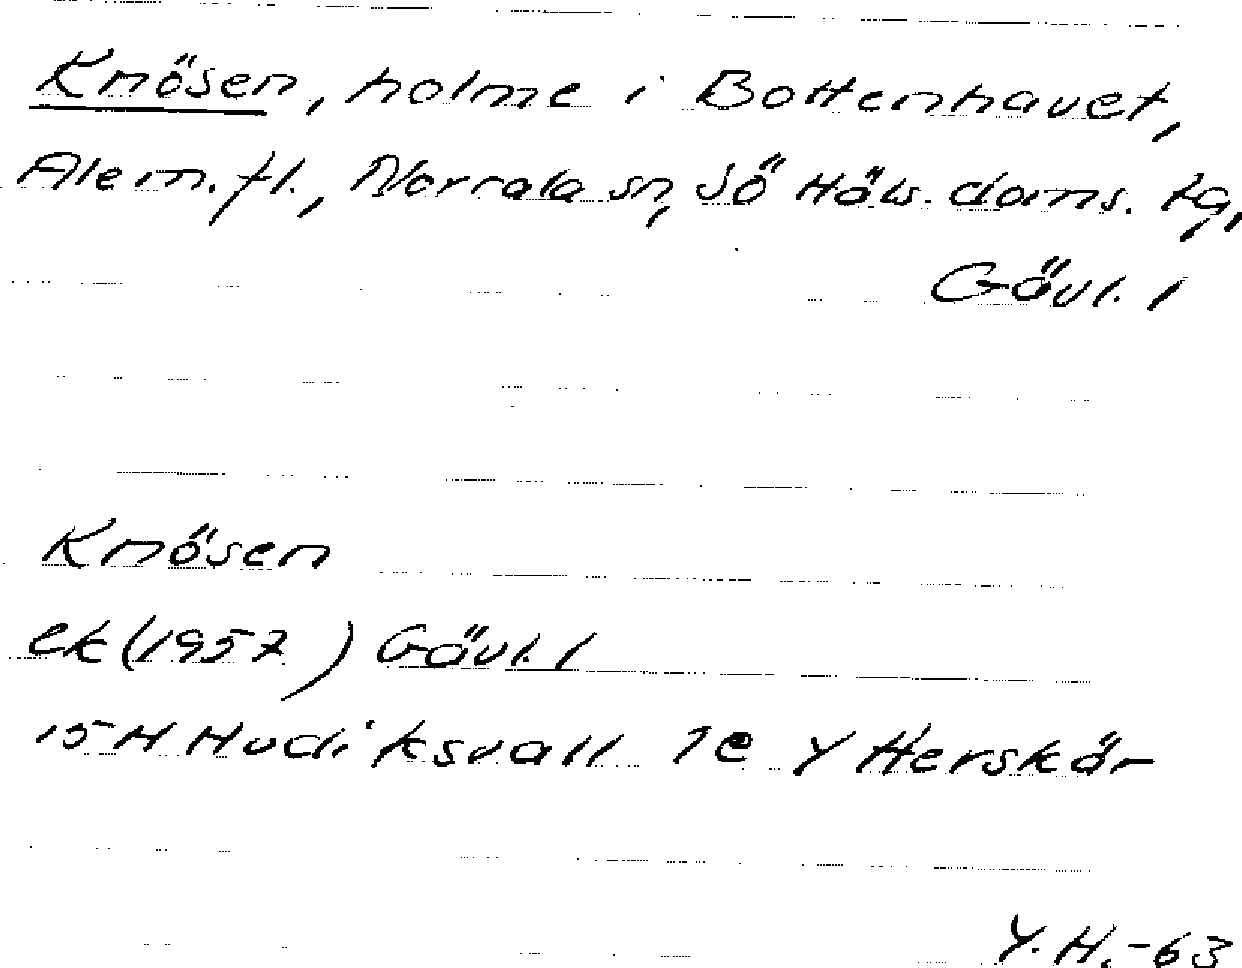 Knösen, holme i Bottenhavet,
Ale m. fl., Norrala sn, Sö Häls. doms. tg,
Gävl. l
Knösen
ek (1957) Gävl. l
15H Hudiksvall 7e Ytterskär
Y.H.-63